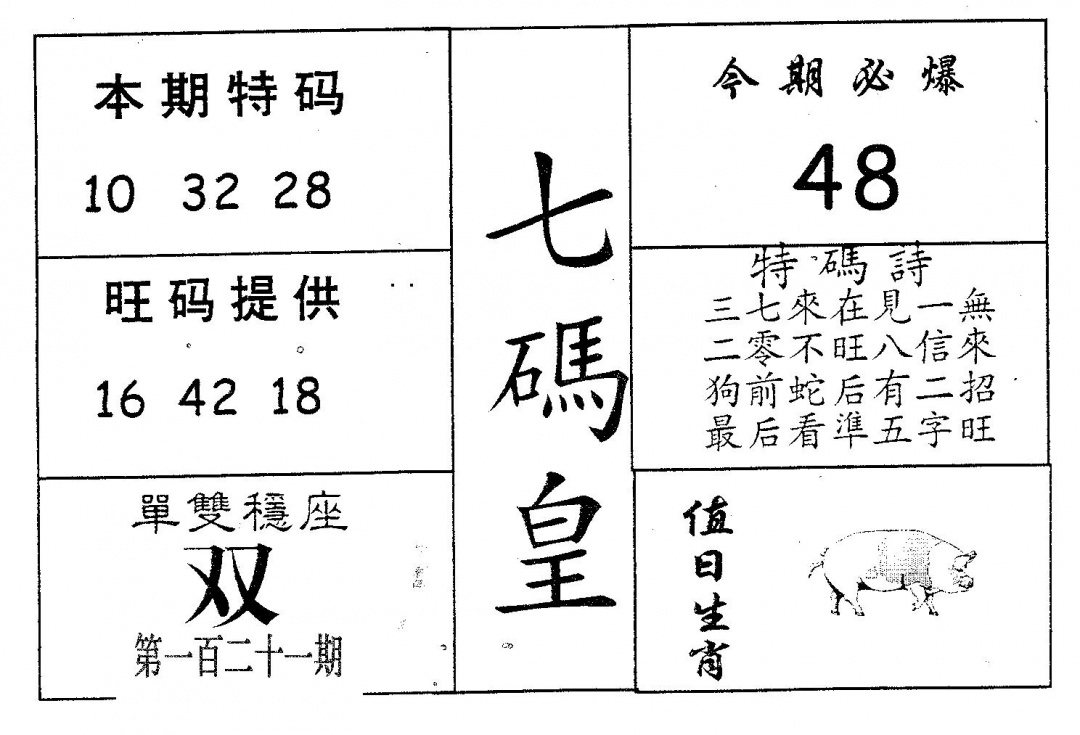 本期特码
10 32 28
旺码提供
16 42 18
單雙穩座
双
第一百二十一期
七碼皇
今期必爆
48
特碼詩
三七來在見一無
二零不旺八信來
狗前蛇后有二招
最后看準五字旺
值日生肖